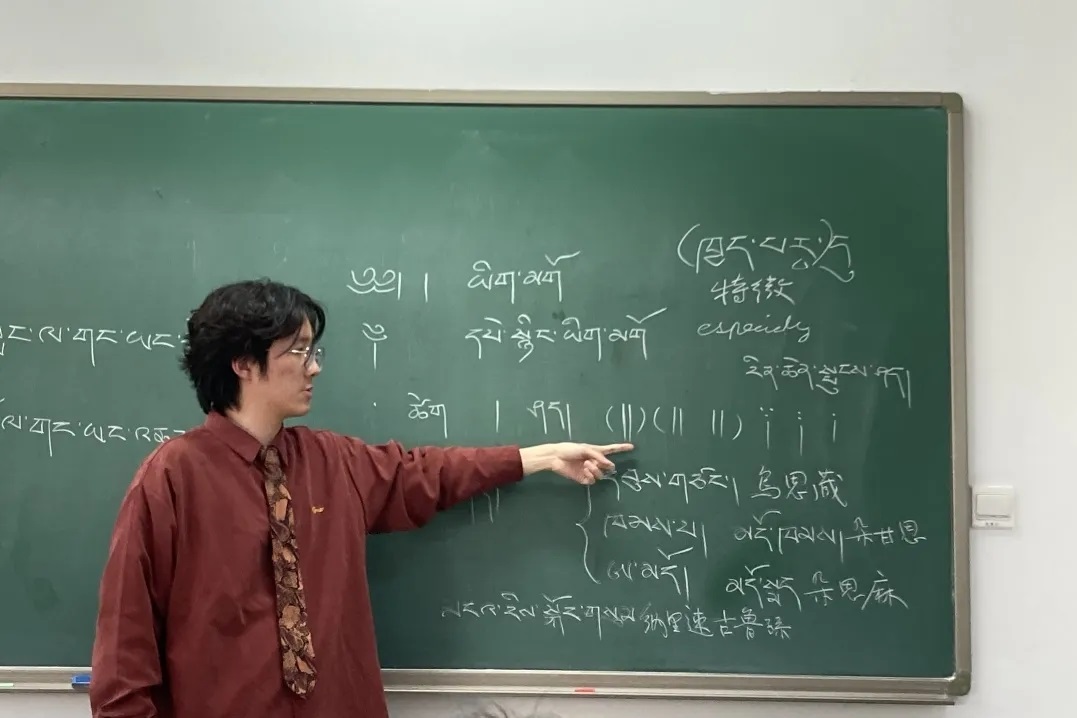 (ཁྱད་པར་)དུ
༄༅། ། ཡིག་མགོ
特徵
especialy
ལ་གང་ཡང་
དཔེ་རྙིང་ཡིག་མགོ
རིན་ཆེན་སྤུངས་ཤད།
་ ཚེག | ཤད། (||) (|| ||)
ལ་གང་ཡང་
དབུས་གཙང་། 烏思藏
ཁམས་པ། མདོ་ཁམས། 朵甘思
ཨ་མདོ། མདོ་སྨད 朵思麻
མངའ་རིས་སྐོར་གསུམ 納里速古魯孫